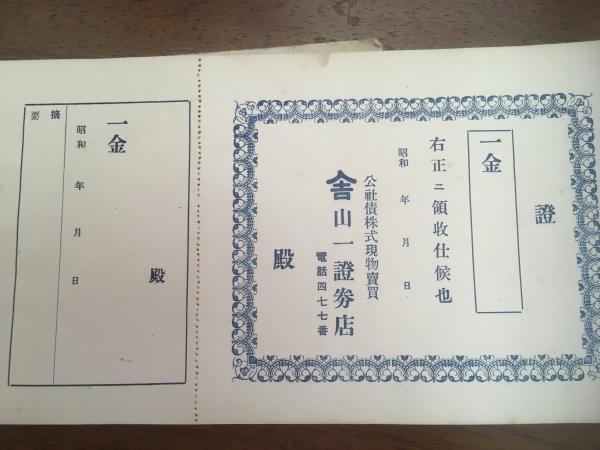 證
一金
右正ニ領收仕候也
昭和 年 月 日
公社債株式現物賣買
山一證券店
電話四七七番
殿
一金
昭和 年 月 日
殿
摘要